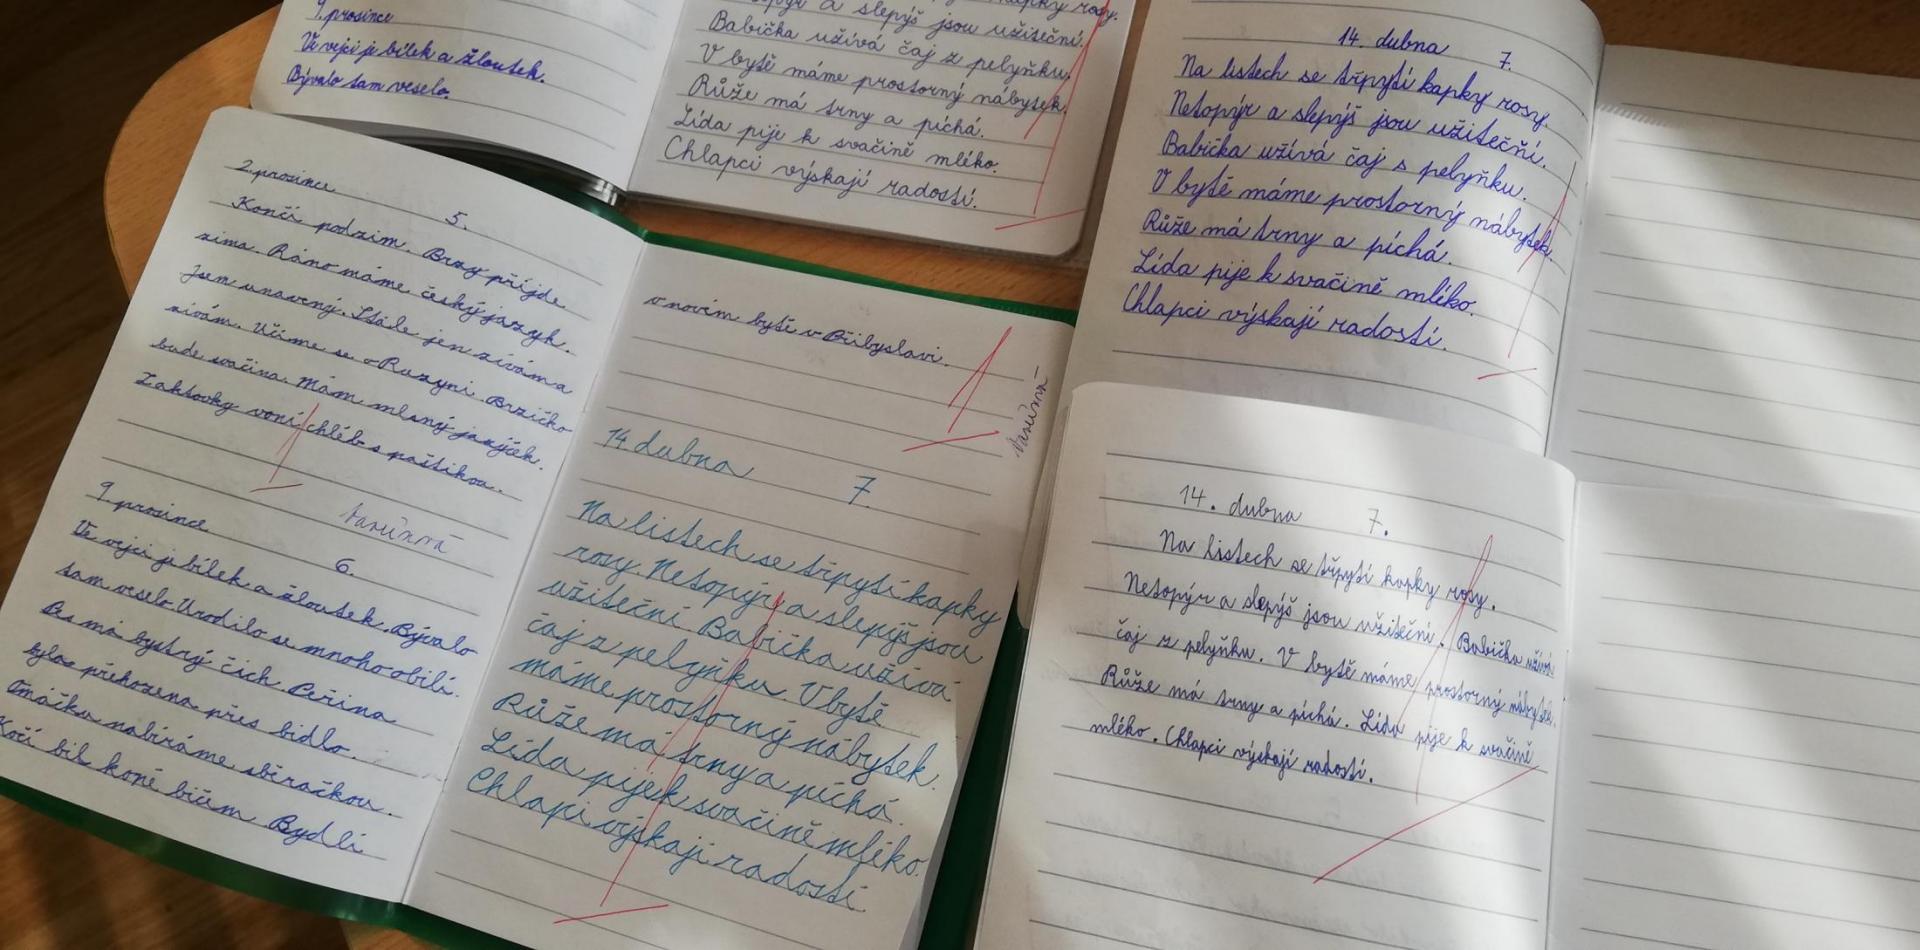 9. prosince
Ve vejci je bílek a žloutek.
Bývalo tam veselo.
kapky rosy.
a slepýš jsou užiteční.
Babička užívá čaj z pelyňku.
V bytě máme prostorný nábytek.
Růže má trny a píchá.
Lída pije k svačině mléko.
Chlapci výskají radostí.
14. dubna 7.
Na listech se třpytí kapky rosy.
Netopýr a slepýš jsou užiteční.
Babička užívá čaj s pelyňku.
V bytě máme prostorný nábytek.
Růže má trny a píchá.
Lída pije k svačině mléko.
Chlapci výskají radostí.
2. prosince
5.
Končí podzim. Brzy příjde
zima. Ráno máme český jazyk.
Jsem unavený. Stále jen zívám a
zívám. Učíme se o Ruzyni. Brzičko
bude svačina. Mám mlsný jazýček.
Z aktovky voní chléb s paštikou.
1
9 prosince
6.
Ve vejci je bílek a žloutek. Bývalo
tam veselo Urodilo se mnoho obilí.
Pes má bystrý čich. Peřina
byla přehozena přes bidlo.
Omáčku nabíráme sběračkou.
Kočí bil koně bičem Bydlí
v novém bytě v Přibyslavi.
1
14 dubna 7.
Na listech se třpytí kapky
rosy. Netopýr a slepýš jsou
užiteční Babička užívá
čaj z pelyňku. V bytě
máme prostorný nábytek.
Růže má trny a píchá.
Lída pije k svačině mléko.
Chlapci výskají radostí
1
14. dubna 7.
Na listech se třpytí kapky rosy.
Netopýr a slepýš jsou užiteční. Babička užívá
čaj z pelyňku. V bytě máme prostorný nábytek.
Růže má trny a píchá. Lída pije k svačině
mléko. Chlapci výskají radostí.
1